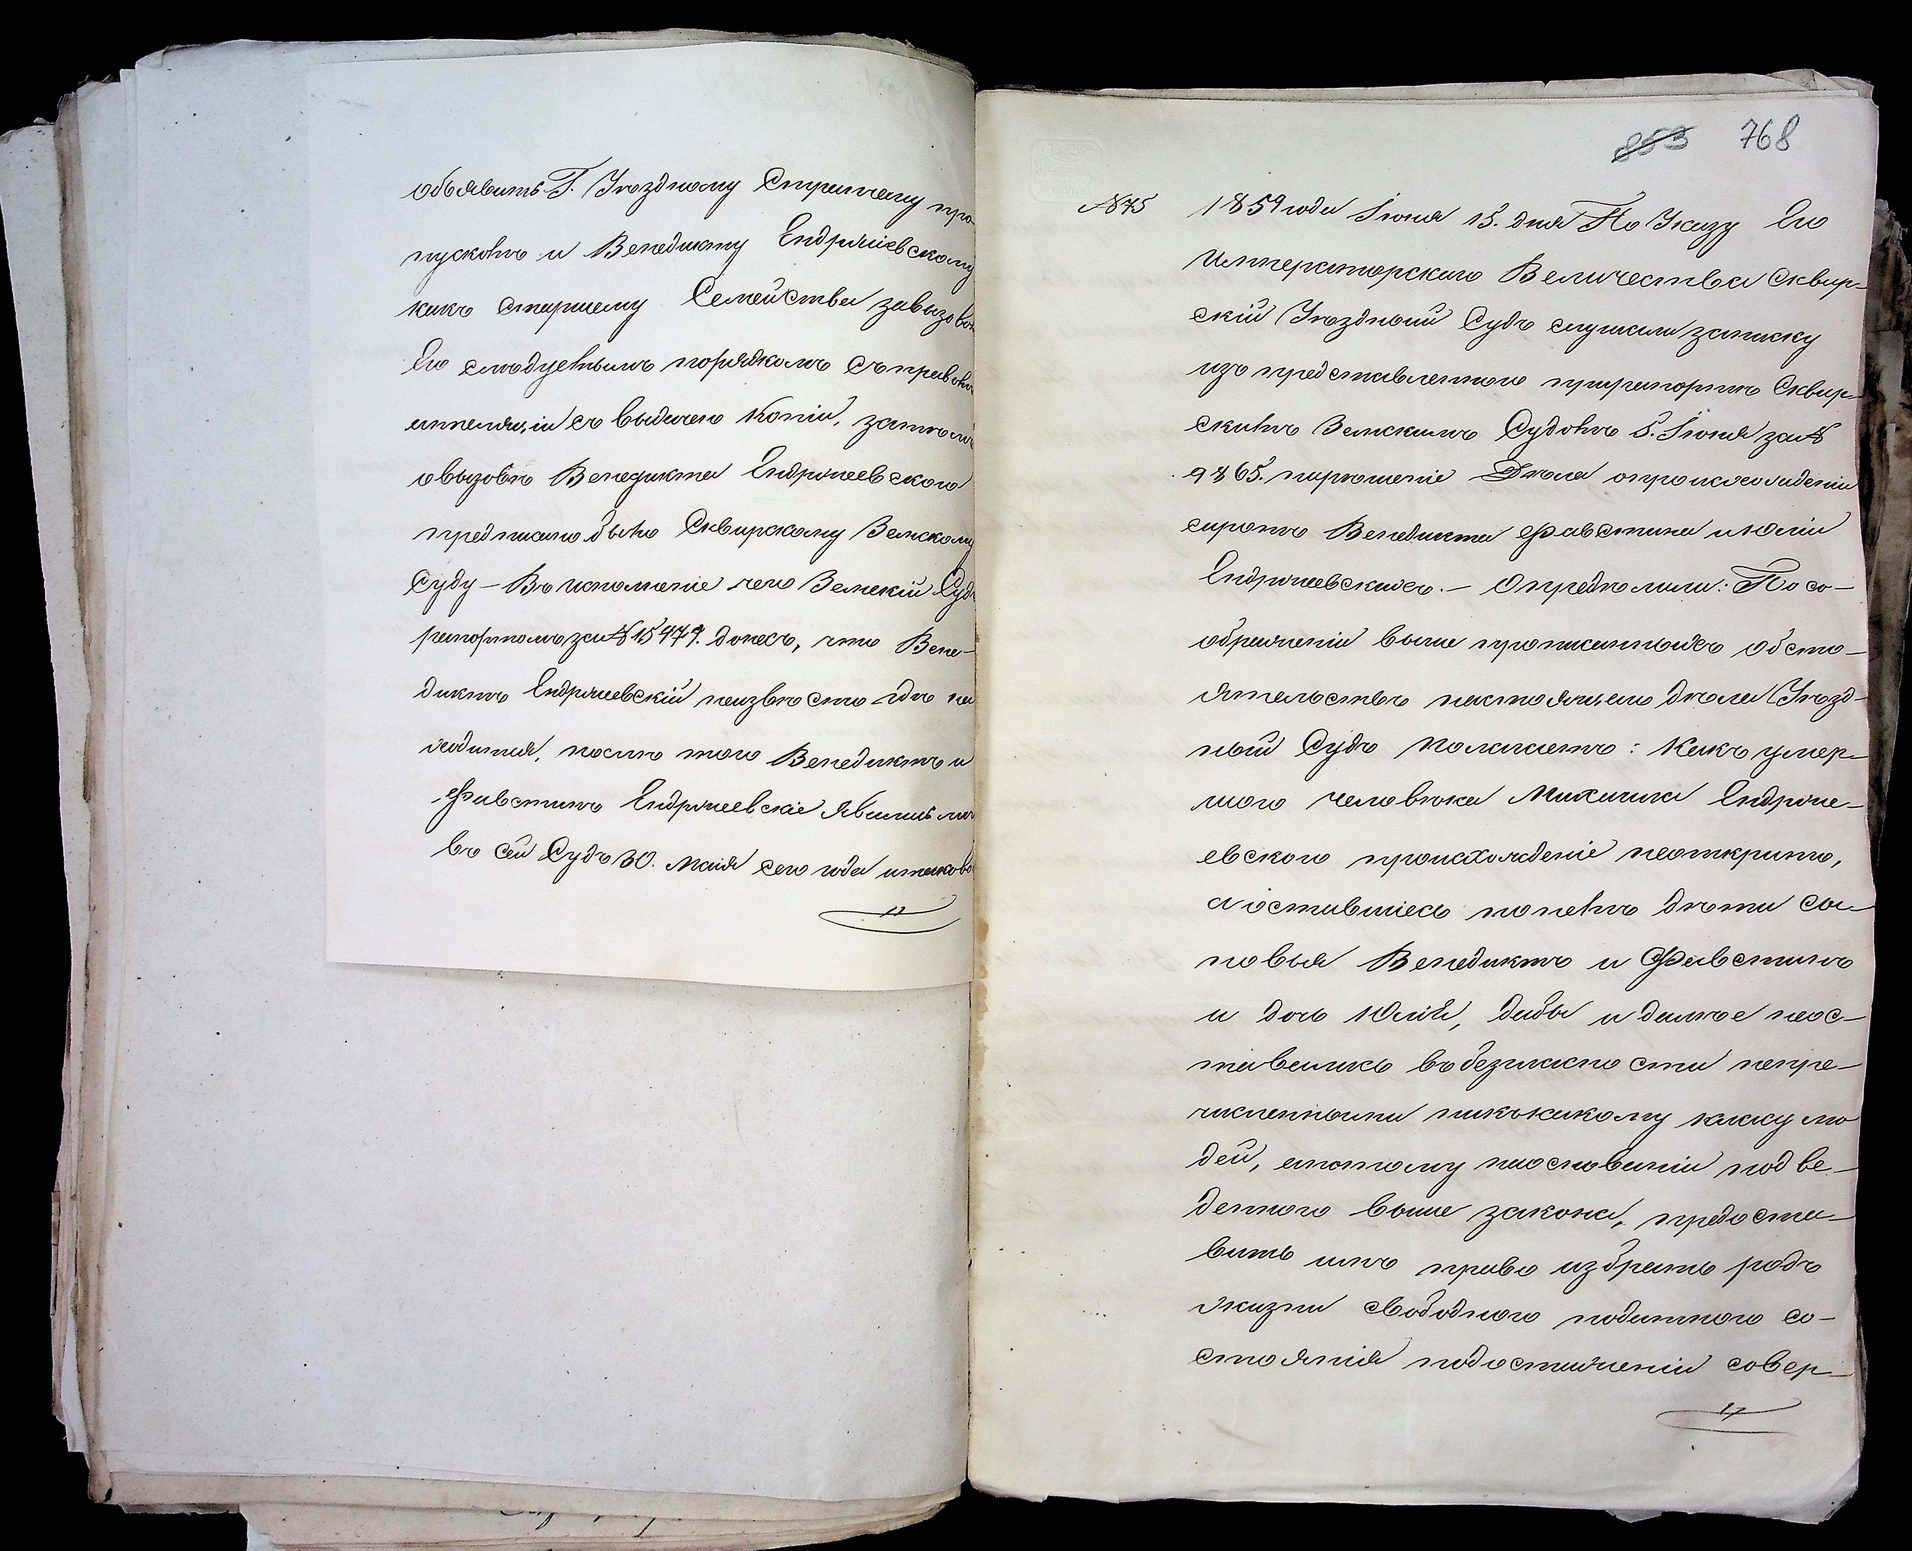 объявить Г. Уѣздному Стряпчему про-
пускомъ и Венедикту Ендржіевскому
какъ старшему Семейства завызовом
Его слѣдуемымъ порядкомъ съ правомъ
аппеляціи съ выдачею Копіи, затѣмъ
овызовѣ Венедикта Ендржеевского
предписано было Сквирскому Земскому
Суду — Во исполненіе чего Земскій Судъ
рапортомъ за № 15479. донесъ, что Вене-
диктъ Ендржеевскій неизвѣстно гдѣ на
ходится, послѣ того Венедиктъ и
Фавстинъ Ендржеевскіе явились
въ сей Судъ 30. Мая сего года итаково
853 768
№ 875 1859 года Іюня 15. дня По Указу Его
Императорскаго Величества Сквир-
скій Уѣздный Судъ слушали записку
изъ представленного прирапортѣ Сквир-
скимъ Земскимъ Судомъ 5. Іюня за №
9865. нарѣшеніе Дѣла опроисхожденіи
сиротъ Венедикта Фавстина и Юліи
Ендржеевскихъ. — Опредѣлили: По со-
ображеніи выше прописанныхъ обсто-
ятельствъ настоящего дѣла Уѣзд-
ный Судъ полагаетъ: Какъ умер-
шого человѣка Михаила Ендрже-
евского происхожденіе неоткрыто,
а оставшіесь понемъ дѣти сы-
новья Венедиктъ и Фавстинъ
и дочь Юлія, дабы и далѣе неос-
тавались въ безгласности непри-
численными никъкакому классу лю
дей, апотому наоснованіи подве-
денного выше закона, предоста-
вить имъ право избрать родъ
жизни свободного податного со-
стоянія подостиженіи совер-